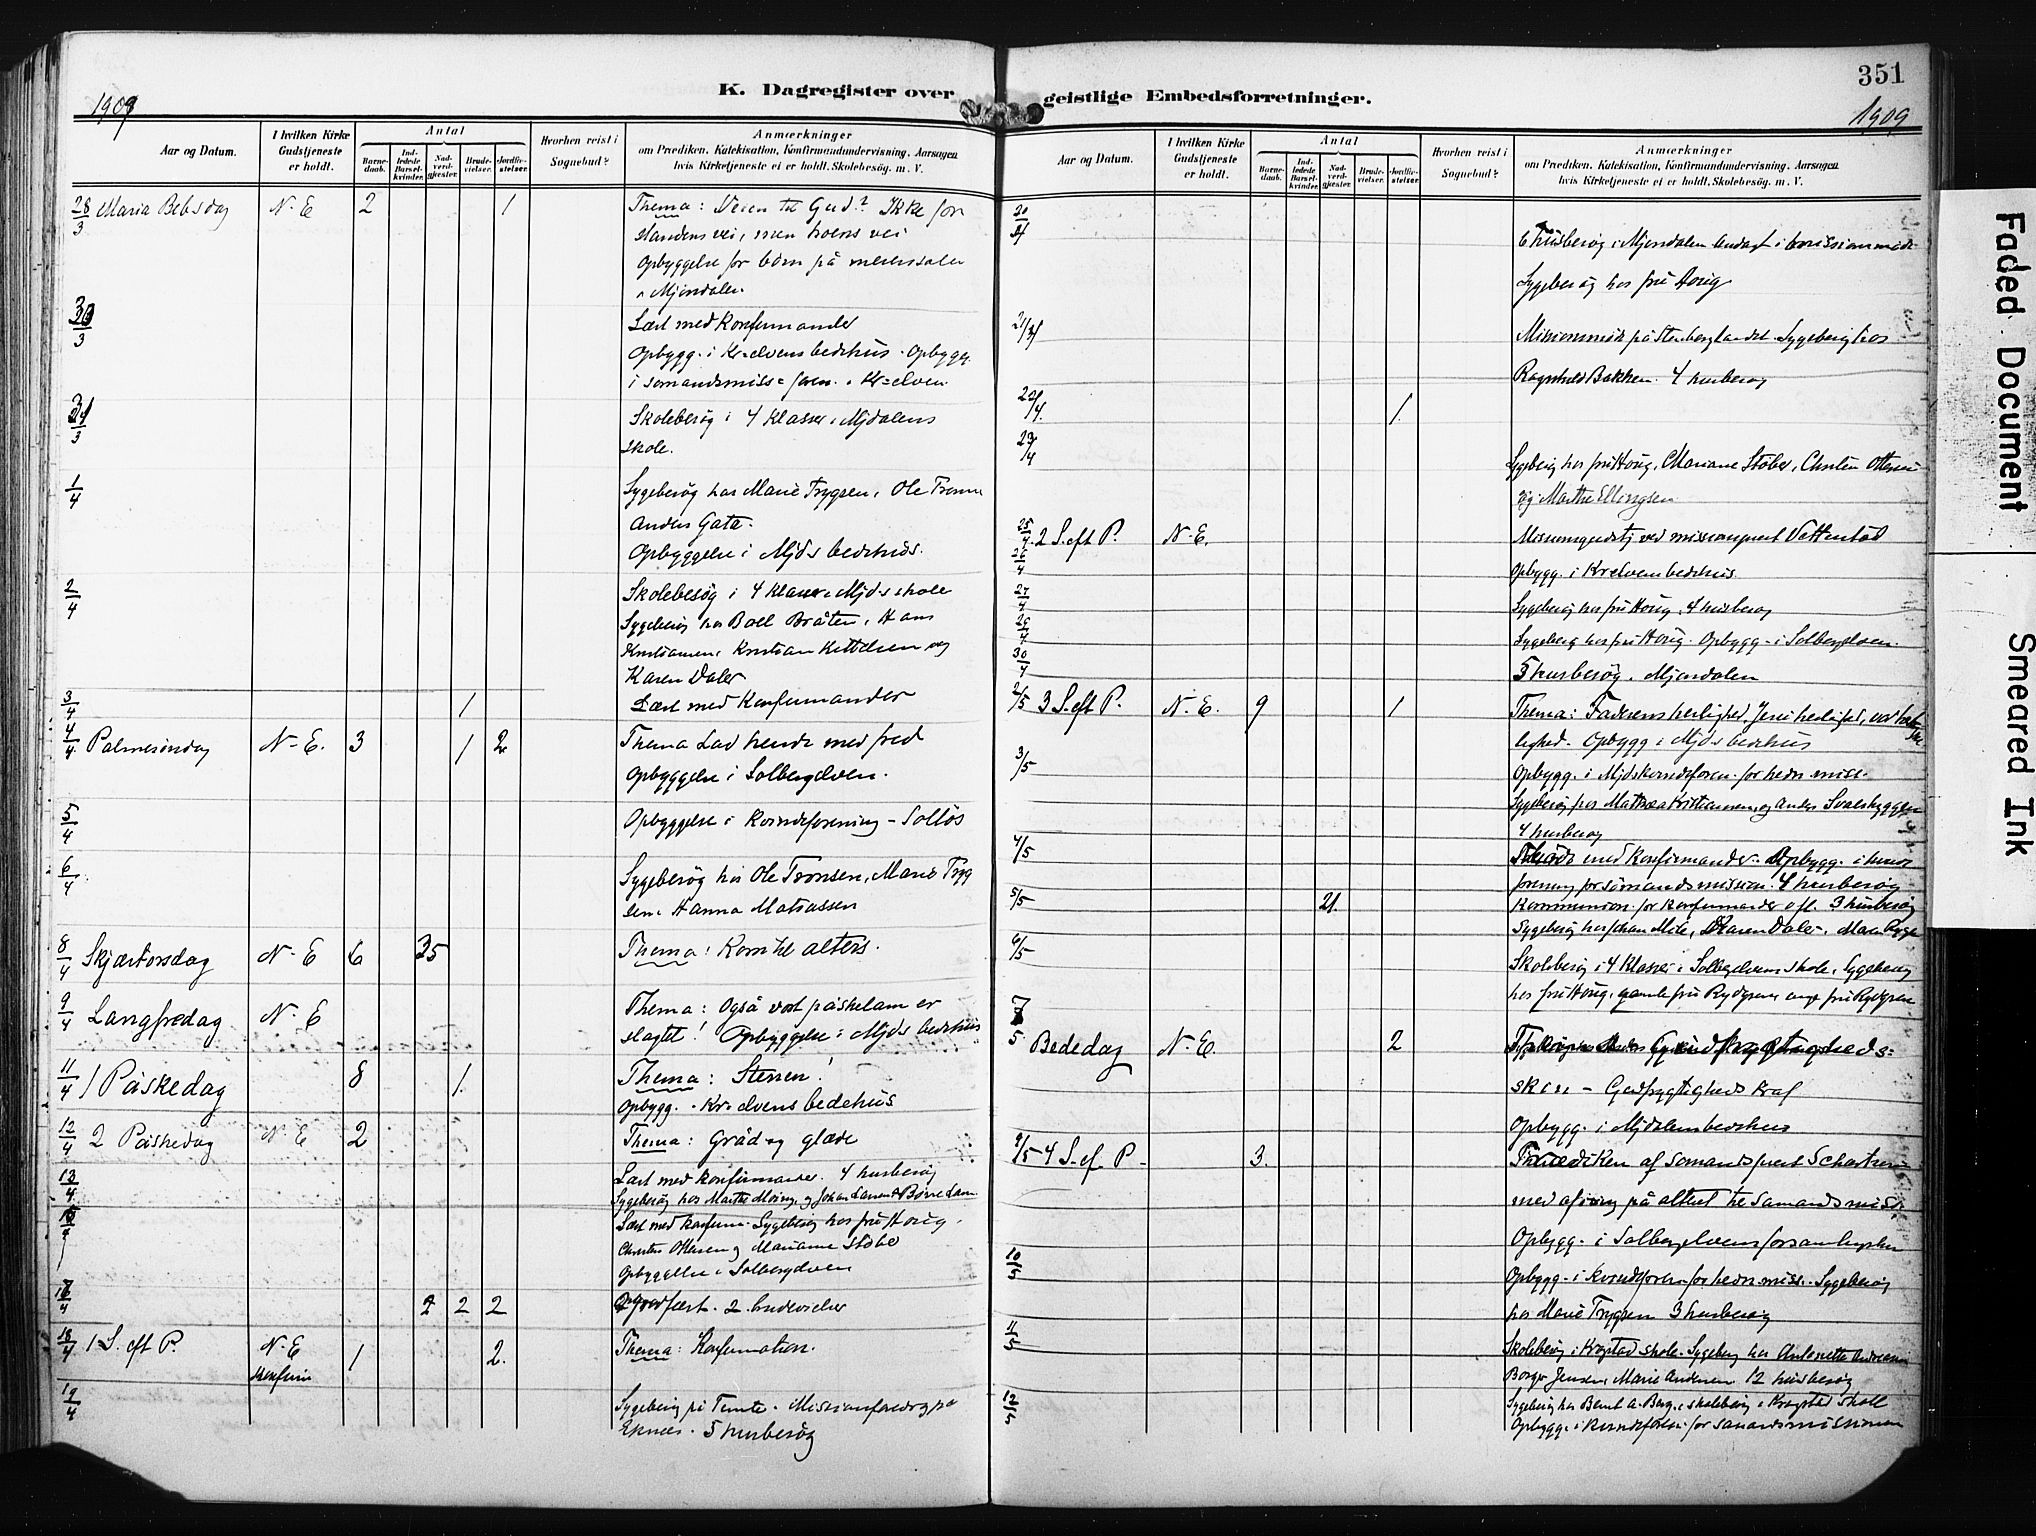 K. Dagregister over
1909
Aar og Datum.
I hvilken Kirke Gudstjeneste er holdt.
Antal
Barnedaab.
Indledede Barselkvinder.
Nadverdgjester.
Brudevielser.
Jordfæstelser.
Hvorhen reist i Sognebud?
Anmærkninger
om Prædiken, Katekisation, Konfirmandundervisning, Aarsagen
hvis Kirketjeneste ei er holdt, Skolebesøg, m. V.
28/3 Maria Bebsdag N. E 2 1 Thema: Veien til Gud? Ikke for
standens vei, men troens vei
Opbyggelse for børn på
i Mjøndalen
30/3 Læst med konfirmander
Opbygg. i Kr=elvens bedehus. Opbygg.
i sømandsmiss=foren. i Kr=elven
31/3 Skolebesøg i 4 klasser i Mjdalens
skole.
1/4 Sygebesøg hos Marie Trygsen, Ole
Anders Gata.
Opbyggelse i Mjds bedehus.
2/4 Skolebesøg i 4 klasser i Mjds skole
Sygebesøg hos Boel Bråten, Hans
Kristiansen, Kristian Kittelsen og
Karen Daler
3/4 1 Læst med Konfirmander
4/4 Palmesøndag N. E. 3 1 2 Thema Lad hende med fred
Opbyggelse i Solbergelven.
5/4 Opbyggelse i Kvindeforening - Solløs
6/4 Sygebesøg hos Ole Tronsen, Marie Tryg
sen, Hanna
8/4 Skjærtorsdag N. E 6 35 Thema: Kom til alters.
9/4 Langfredag N. E Thema: Også vort påskelam er
slagtet! Opbyggelse i Mjds bedehus
11/4 1 Påskedag 8 1 Thema: Stenen!
Opbygg. i Kr=elvens bedehus
12/4 2 Påskedag N. E 2 Thema: Gråd og glæde
13/4 Læst med konfirmander. 4 husbesøg
Sygebesøg hos Marthe og Johan
Læst med konfirm. Sygebesøg hos fru Houg.
Christen Ottesen og Marianne Støbe
Opbyggelse i Solbergelven
16/4 2 2 2 2 brudevielser
18/4 1 S. eft P. N. E 1 2. Thema: Konfirmation.
Konfirm
19/4 Sygebesøg på Temte. Missionsforedrag på
Eknes. 5 husbesøg
geistlige Embedsforretninger.
351
1909
Aar og Datum.
I hvilken Kirke Gudstjeneste er holdt.
Antal
Barnedaab.
Indledede Barselkvinder.
Nadverdgjester.
Brudevielser.
Jordfæstelser.
Hvorhen reist i Sognebud?
Anmærkninger
om Prædiken, Katekisation, Konfirmandundervisning, Aarsagen
hvis Kirketjeneste ei er holdt, Skolebesøg, m. V.
20/4 6 husbesøg i Mjøndalen Andagt i
Sygebesøg hos fru Houg
21/4 Missionsmøde på Stenberglandet. Sygebesøg hos
Ragnhild Bakken. 4 husbesøg
22/4. 1
23/4 Sygebesøg hos fru Houg, Mariane Støbe, Christen Ottesen
og Marthe Ellingsen
25/4 2 S. eft P. N. E. Missionsgudstj ved missionsprest Vettestad
26/4 Opbygg. i Kr=elvens bedehus.
27/4 Sygebesøg hos fru Houg, 4 husbesøg
29/4 Sygebesøg hos fru Houg. Opbygg. i Solbergelven.
30/4 5 husbesøg. Mjøndalen
2/5 3 S. eft P. N. E. 9 1 Thema: Faderens herlighed, Jesu herlighed, vor
lighed. Opbygg i Mjds bedehus
3/5 Opbygg. i Mjds kvindeforen. for hedn miss.
Sygebesøg hos Mathea Kristiansen, og Anders
4 husbesøg
4/5 med konfirmander. Opbygg. i
forening for sømandsmission. 4 husbesøg
5/5 21. Kommunion for konfirmander o fl. 3 husbesøg
Sygebesøg hos Johan Mile, Karen Daler,
6/5 Skolebesøg i 4 klasser i Solbergelvens skole. Sygebesøg
hos fru Houg, gamle fru Rydgren, unge fru Rydgren
7/5 Bededag N. E. 2 Gudfrygtigheds=
skin - Gudfrygtigheds kraf
Opbygg. i Mjdalens bedehus
9/5 4 S. ef. P. 3. Prædiken af sømandsprest
med ofring på alteret til Sømandsmiss.
Opbygg. i Solbergelvens forsamlingshus
10/5 Opbygg. i kvindeforen for hedn miss. Sygebesøg
hos Marie Trygsen 3 husbesøg
11/5 Skolebesøg i Krogstad skole. Sygebesøg hos Antonette Andreasen
Borger Jensen, Marie Andersen 12 husbesøg
12/5 Sygebesøg hos Bernt A. Berg, skolebesøg i Krogstad skole
Opbygg. i kvindeforen. for sømandsmissionen
Faded Document
Smeared Ink